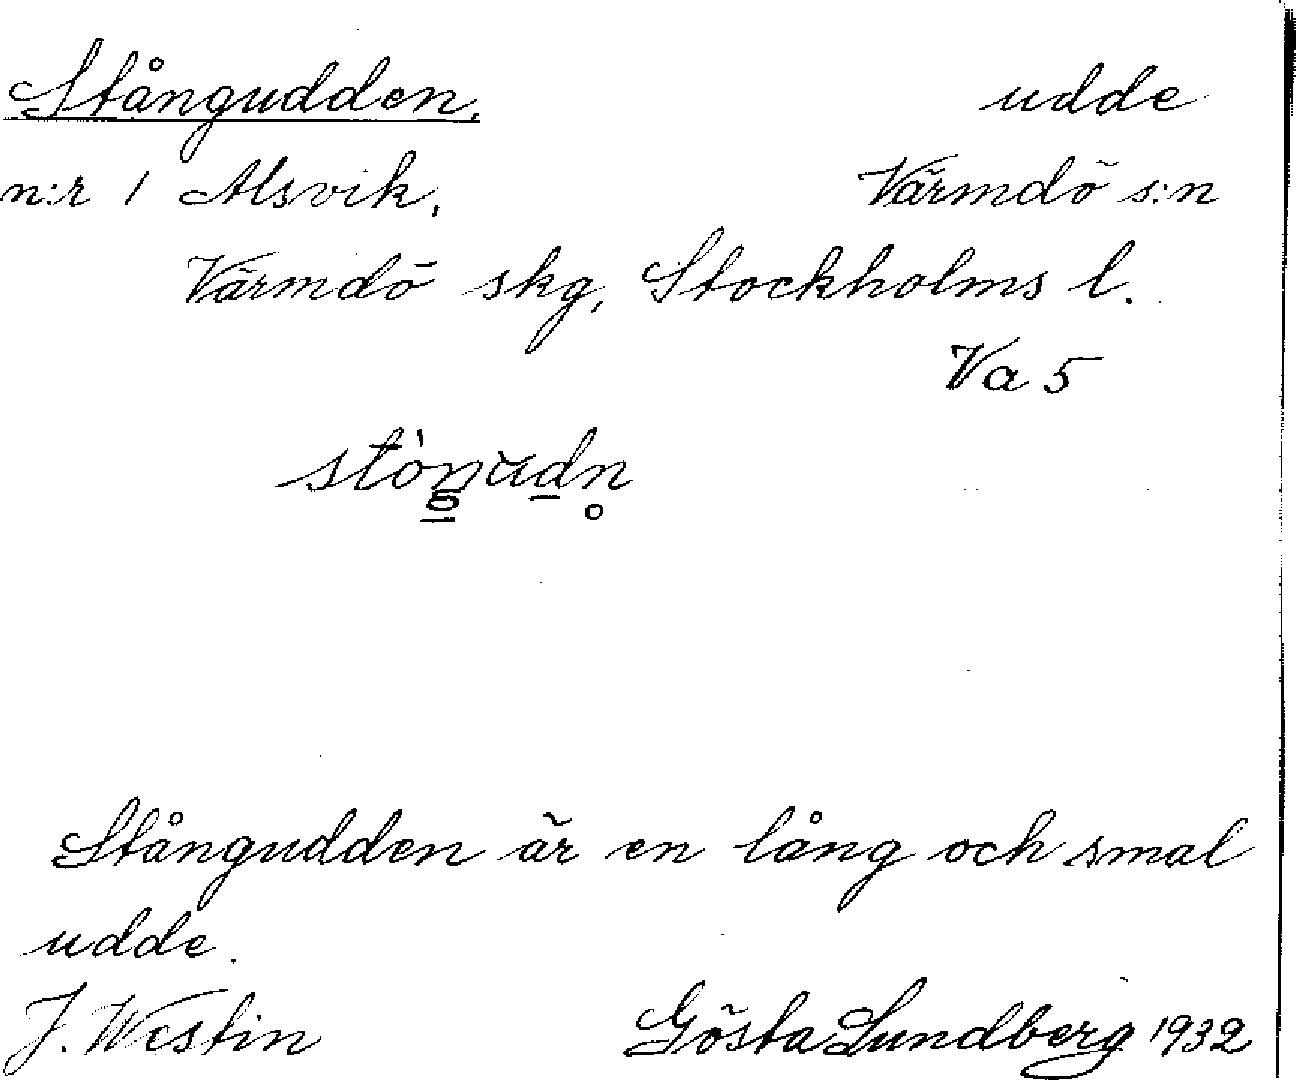 Stångudden. udde
n:r 1 Alsvik, Värmdö s:n
Värmdö skg, Stockholms l.
Va 5
stòŋudn̥
Stångudden är en lång och smal
udde.
J. Westin Gösta Lundberg 1932